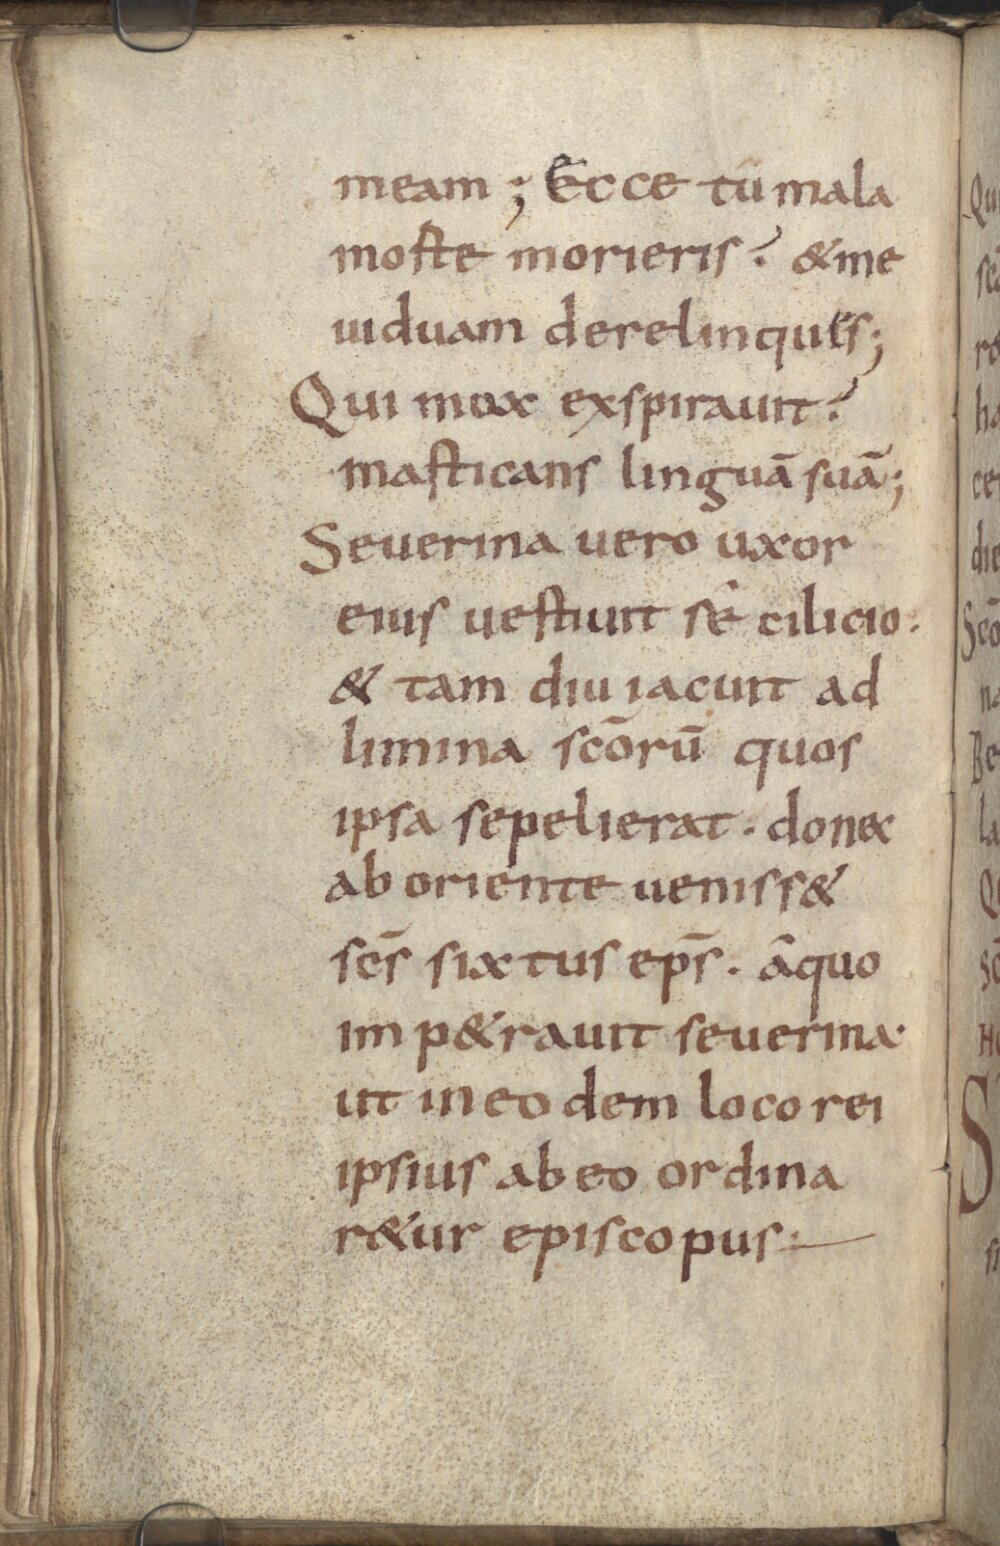 meam ; Ecce tû mala
moſte morieriſ ? & me
uiduam derelinquiſ ;
Qui mox exſpirauit ?
maſticanſ linguā ſuā ;
Seuerina uero uxor
eiuſ ueſtiuit ſê cilicio .
& tam diu iacuit ad
limina ſcōrū quoſ
ipſa ſepelierat . donec
ab oriente ueniſſ&
ſcſ̄ ſixtuſ epſ̄ . âquo
imp&rauit ſeuerina .
ut in eodem loco rei
ipſiuſ ab eo ordina
r&ur epiſcopuſ .